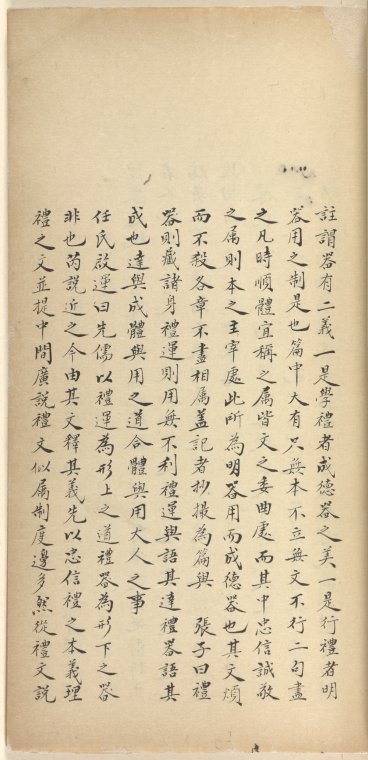 註謂器有二義一是學禮者成德器之美一是行禮者明
器用之制是也篇中大有只無本不立無文不行二句盡
之凡時順體宜稱之属皆文之委曲處而其中忠信誠敬
之属則本之主宰處此所為明器用而成德器也其文煩
而不殺各章不盡相属盖記者抄撮為篇與 張子曰禮
器則藏諸身禮運則用無不利禮運與語其達禮器語其
成也達與成體與用之道合體與用大人之事
任氏啟運曰先儒以禮運為形上之道禮器為形下之器
非也芮説近之今由其文釋其義先以忠信禮之本義理
禮之文並提中間廣説禮文似属制度邊多然從禮文説